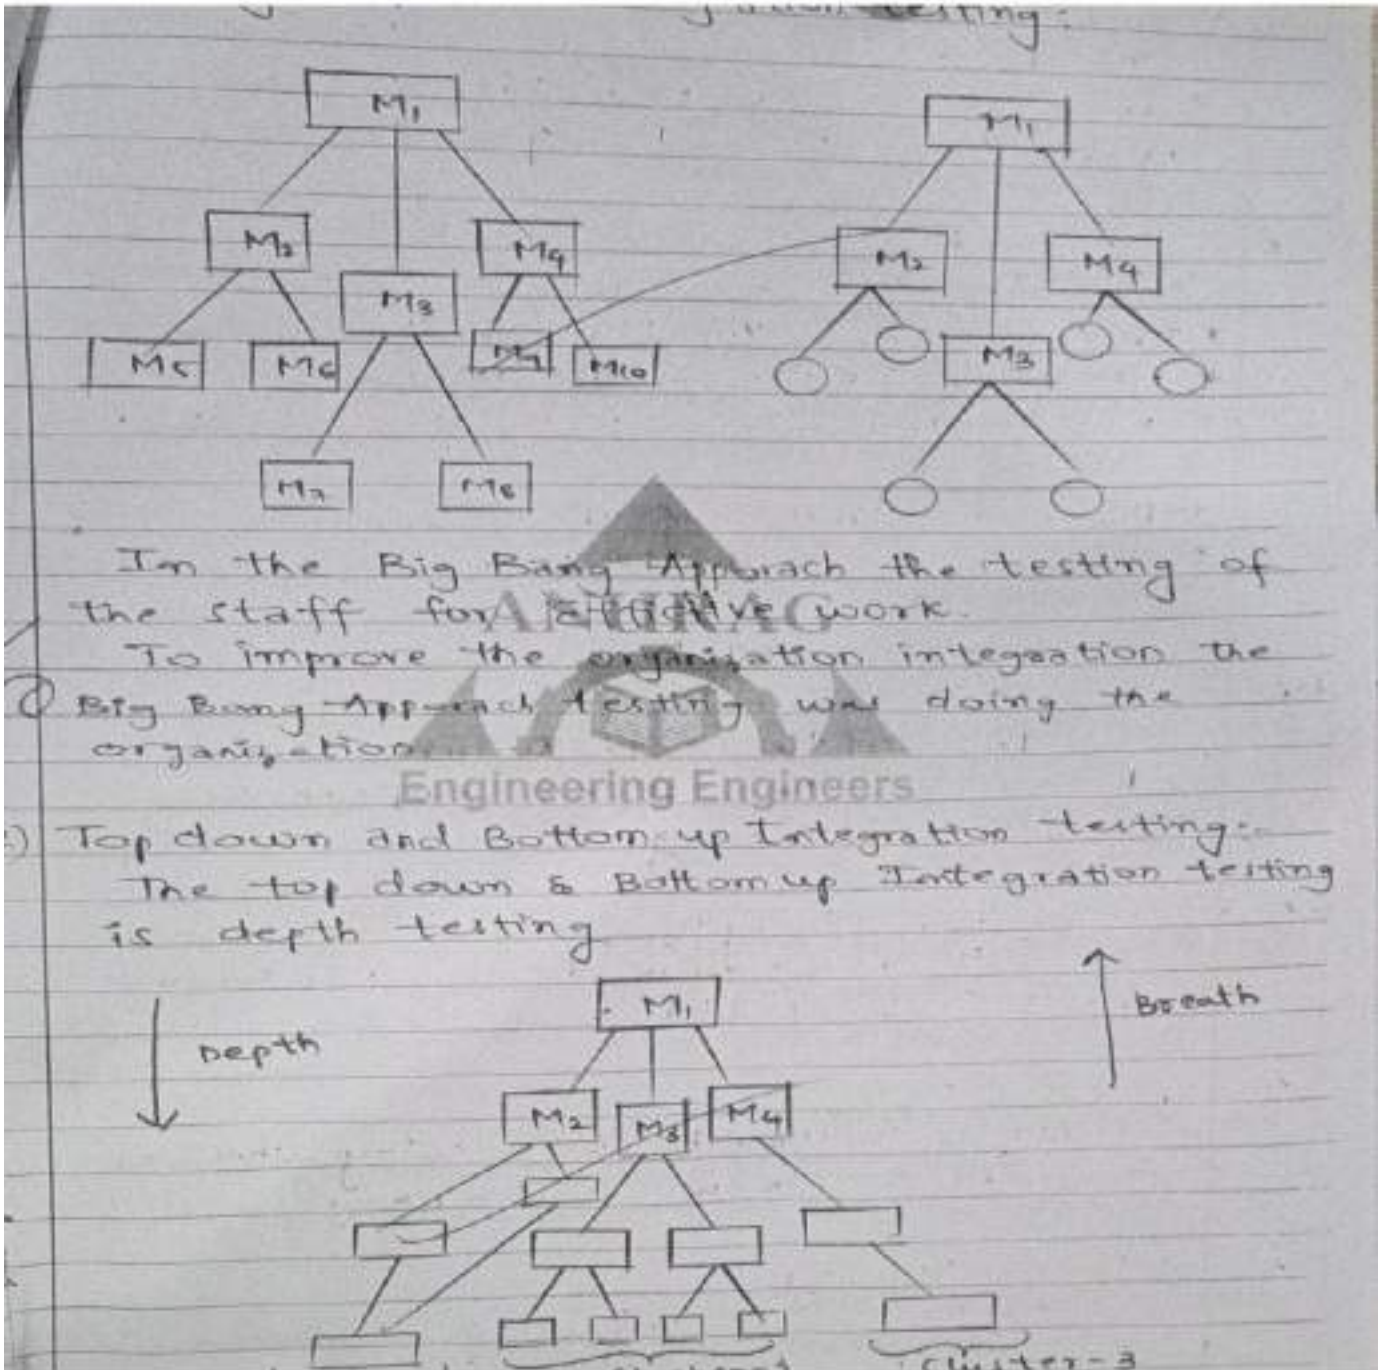 testing:
M1
M1
M2
M4
M2
M4
M3
M3
M5
M6
M9
M10
M7
M8
In the Big Bang Approach the testing of
the staff for effective work.
To improve the organization integration the
Big Bang Approach testing was doing the
organization
ANURAG
Engineering Engineers
Top down and Bottom-up Integration testing:-
The top down & Bottom up Integration testing
is depth testing
M1
Breath
Depth
M2
M3
M4
cluster-3